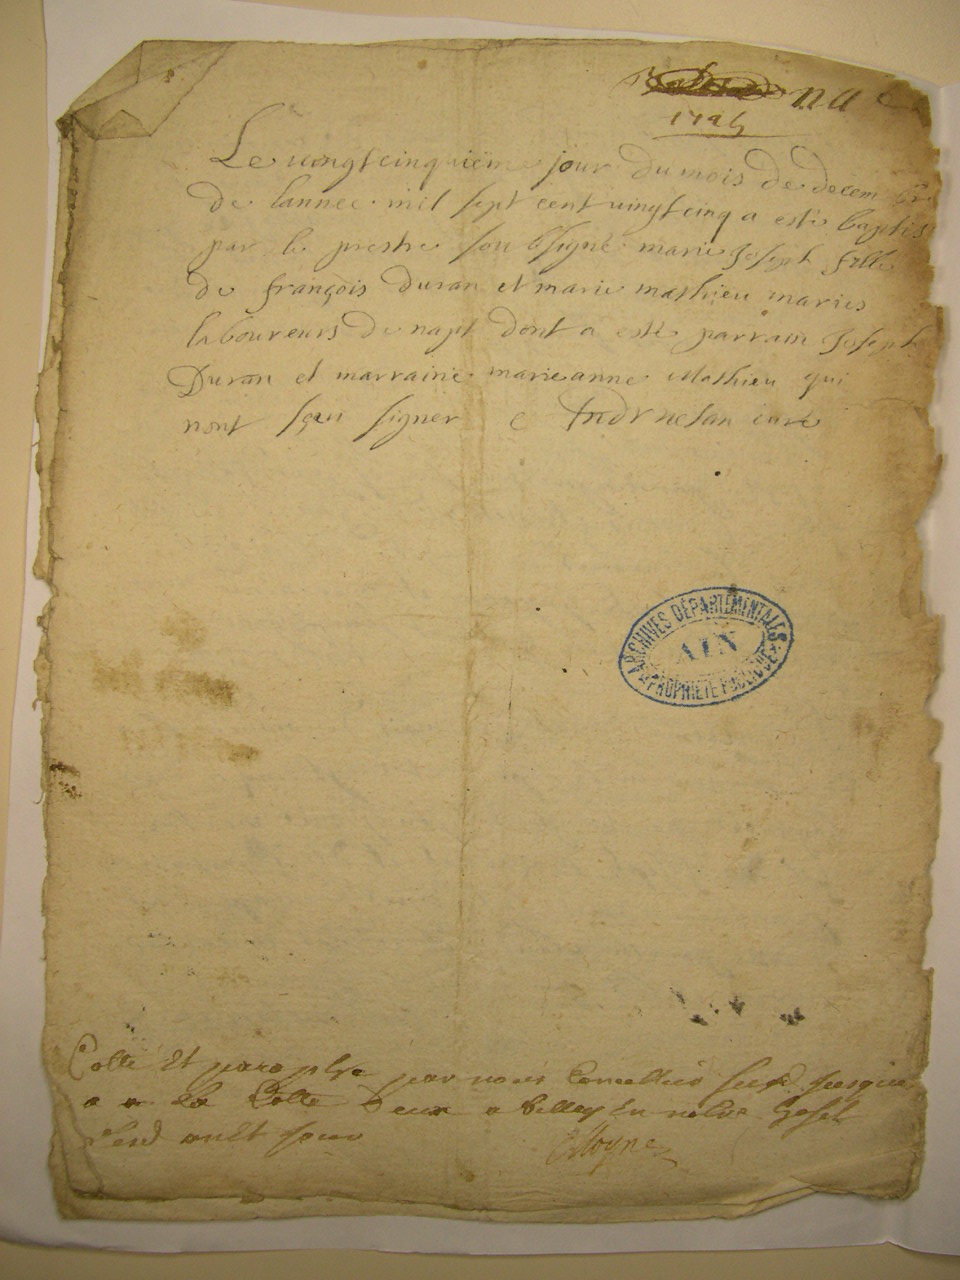 na
1725
Le vongtcinquiëme jour du mois de decembr
de lannee mil sept cent vingtcinq a esté baptis
par le prestre soubsigné marie Joseph fille
de françois duran et marie mathieu maries
laboureurs de napt dont a esté parrain Joseph
Duran et marraine marieanne Mathieu qui
nont sçeu signer curé
ARCHIVES DÉPARTEMENTALES
AIN
PROPRIÉTÉ PUBLIQUE
Cotté Et paraphé par nous Conseiller jusque
a la Cotte Deux a belley
an Et jour